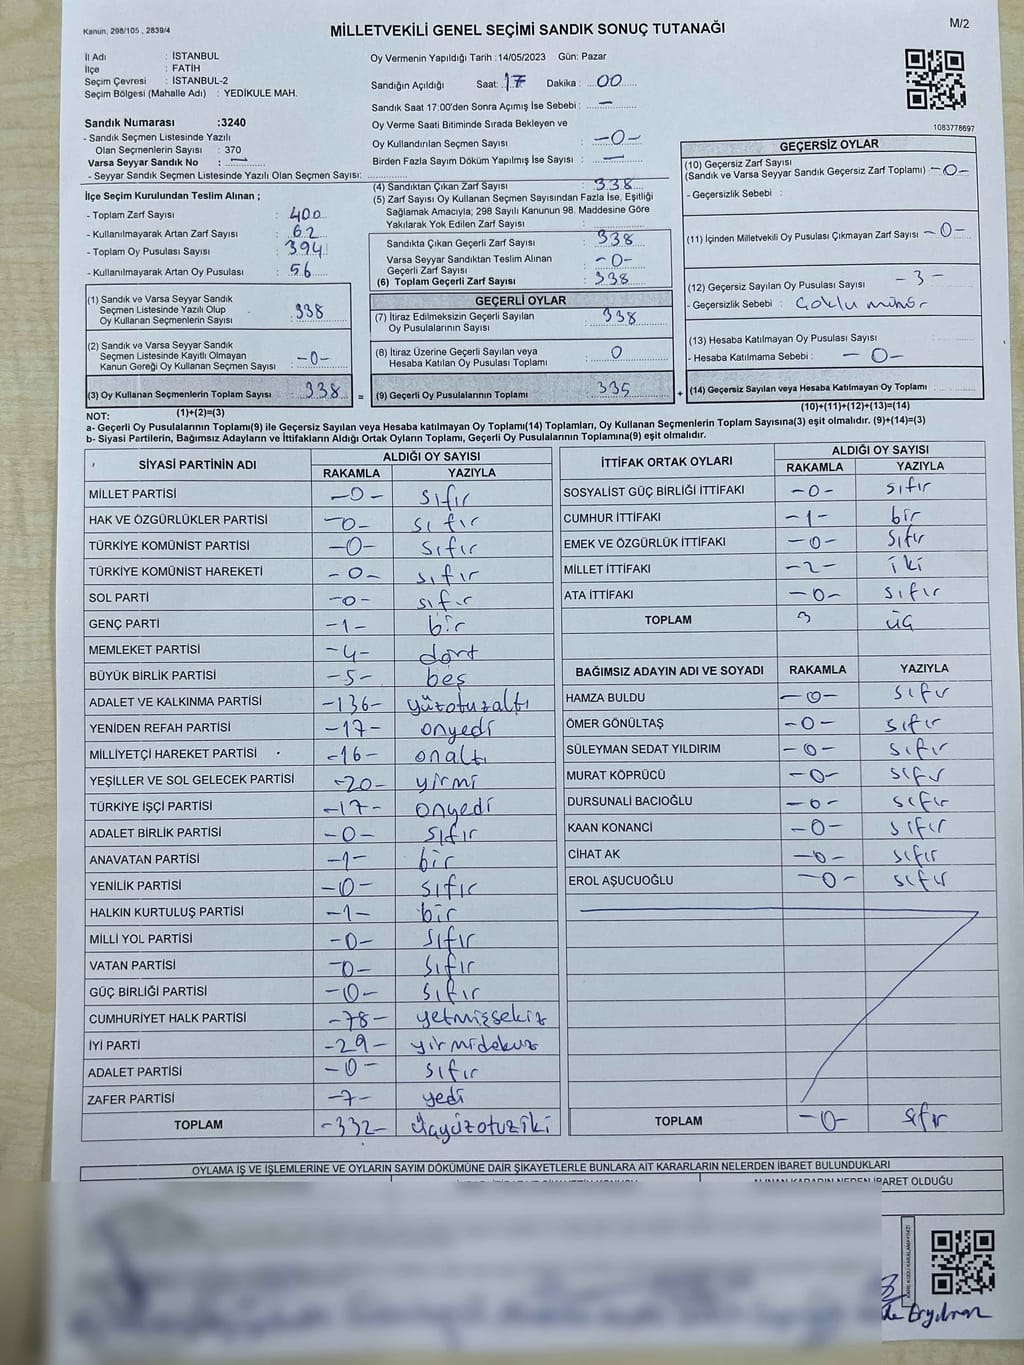 Kanun, 298/105 , 2839/4
MİLLETVEKİLİ GENEL SEÇİMİ SANDIK SONUÇ TUTANAĞI
M/2
İl Adı : İSTANBUL
İlçe : FATİH
Seçim Çevresi : İSTANBUL-2
Seçim Bölgesi (Mahalle Adı) : YEDİKULE MAH.
Sandık Numarası :3240
- Sandık Seçmen Listesinde Yazılı
Olan Seçmenlerin Sayısı : 370
Varsa Seyyar Sandık No : —
- Seyyar Sandık Seçmen Listesinde Yazılı Olan Seçmen Sayısı:
Oy Vermenin Yapıldığı Tarih :14/05/2023 Gün: Pazar
Sandığın Açıldığı Saat: 17 Dakika : 00
Sandık Saat 17:00'den Sonra Açımış İse Sebebi : —
Oy Verme Saati Bitiminde Sırada Bekleyen ve
Oy Kullandırılan Seçmen Sayısı : -0-
Birden Fazla Sayım Döküm Yapılmış İse Sayısı : —
1083778697
İlçe Seçim Kurulundan Teslim Alınan ;
- Toplam Zarf Sayısı : 400
- Kullanılmayarak Artan Zarf Sayısı : 62
- Toplam Oy Pusulası Sayısı : 394
- Kullanılmayarak Artan Oy Pusulası : 56
(1) Sandık ve Varsa Seyyar Sandık
Seçmen Listesinde Yazılı Olup
Oy Kullanan Seçmenlerin Sayısı : 338
(2) Sandık ve Varsa Seyyar Sandık
Seçmen Listesinde Kayıtlı Olmayan
Kanun Gereği Oy Kullanan Seçmen Sayısı : -0-
(3) Oy Kullanan Seçmenlerin Toplam Sayısı : 338 =
(1)+(2)=(3)
(4) Sandıktan Çıkan Zarf Sayısı : 338
(5) Zarf Sayısı Oy Kullanan Seçmen Sayısından Fazla İse, Eşitliği
Sağlamak Amacıyla; 298 Sayılı Kanunun 98. Maddesine Göre
Yakılarak Yok Edilen Zarf Sayısı :
Sandıkta Çıkan Geçerli Zarf Sayısı : 338
Varsa Seyyar Sandıktan Teslim Alınan
Geçerli Zarf Sayısı : -0-
(6) Toplam Geçerli Zarf Sayısı : 338
GEÇERLİ OYLAR
(7) İtiraz Edilmeksizin Geçerli Sayılan
Oy Pusulalarının Sayısı : 338
(8) İtiraz Üzerine Geçerli Sayılan veya
Hesaba Katılan Oy Pusulası Toplamı : 0
(9) Geçerli Oy Pusulalarının Toplamı : 335 +
GEÇERSİZ OYLAR
(10) Geçersiz Zarf Sayısı
(Sandık ve Varsa Seyyar Sandık Geçersiz Zarf Toplamı) -0-
- Geçersizlik Sebebi :
(11) İçinden Milletvekili Oy Pusulası Çıkmayan Zarf Sayısı -0-
(12) Geçersiz Sayılan Oy Pusulası Sayısı : -3-
- Geçersizlik Sebebi : Çoklu mühür
(13) Hesaba Katılmayan Oy Pusulası Sayısı :
- Hesaba Katılmama Sebebi : -0-
(14) Geçersiz Sayılan veya Hesaba Katılmayan Oy Toplamı :
(10)+(11)+(12)+(13)=(14)
NOT:
a- Geçerli Oy Pusulalarının Toplamı(9) ile Geçersiz Sayılan veya Hesaba katılmayan Oy Toplamı(14) Toplamları, Oy Kullanan Seçmenlerin Toplam Sayısına(3) eşit olmalıdır. (9)+(14)=(3)
b- Siyasi Partilerin, Bağımsız Adayların ve İttifakların Aldığı Ortak Oyların Toplamı, Geçerli Oy Pusulalarının Toplamına(9) eşit olmalıdır.
SİYASİ PARTİNİN ADI ALDIĞI OY SAYISI
RAKAMLA YAZIYLA
MİLLET PARTİSİ -0- sıfır
HAK VE ÖZGÜRLÜKLER PARTİSİ -0- sıfır
TÜRKİYE KOMÜNİST PARTİSİ -0- sıfır
TÜRKİYE KOMÜNİST HAREKETİ -0- sıfır
SOL PARTİ -0- sıfır
GENÇ PARTİ -1- bir
MEMLEKET PARTİSİ -4- dört
BÜYÜK BİRLİK PARTİSİ -5- beş
ADALET VE KALKINMA PARTİSİ -136- yüzotuzaltı
YENİDEN REFAH PARTİSİ -17- onyedi
MİLLİYETÇİ HAREKET PARTİSİ -16- onaltı
YEŞİLLER VE SOL GELECEK PARTİSİ -20- yirmi
TÜRKİYE İŞÇİ PARTİSİ -17- onyedi
ADALET BİRLİK PARTİSİ -0- sıfır
ANAVATAN PARTİSİ -1- bir
YENİLİK PARTİSİ -0- sıfır
HALKIN KURTULUŞ PARTİSİ -1- bir
MİLLİ YOL PARTİSİ -0- sıfır
VATAN PARTİSİ -0- sıfır
GÜÇ BİRLİĞİ PARTİSİ -0- sıfır
CUMHURİYET HALK PARTİSİ -78- yetmişsekiz
İYİ PARTİ -29- yirmidokuz
ADALET PARTİSİ -0- sıfır
ZAFER PARTİSİ -7- yedi
TOPLAM -332- üçyüzotuziki
İTTİFAK ORTAK OYLARI ALDIĞI OY SAYISI
RAKAMLA YAZIYLA
SOSYALİST GÜÇ BİRLİĞİ İTTİFAKI -0- sıfır
CUMHUR İTTİFAKI -1- bir
EMEK VE ÖZGÜRLÜK İTTİFAKI -0- sıfır
MİLLET İTTİFAKI -2- iki
ATA İTTİFAKI -0- sıfır
TOPLAM 3 üç
BAĞIMSIZ ADAYIN ADI VE SOYADI RAKAMLA YAZIYLA
HAMZA BULDU -0- sıfır
ÖMER GÖNÜLTAŞ -0- sıfır
SÜLEYMAN SEDAT YILDIRIM -0- sıfır
MURAT KÖPRÜCÜ -0- sıfır
DURSUNALİ BACIOĞLU -0- sıfır
KAAN KONANCİ -0- sıfır
CİHAT AK -0- sıfır
EROL AŞUCUOĞLU -0- sıfır
TOPLAM -0- sıfır
OYLAMA İŞ VE İŞLEMLERİNE VE OYLARIN SAYIM DÖKÜMÜNE DAİR ŞİKAYETLERLE BUNLARA AİT KARARLARIN NELERDEN İBARET BULUNDUKLARI
ALINAN KARARIN NEDEN İBARET OLDUĞU